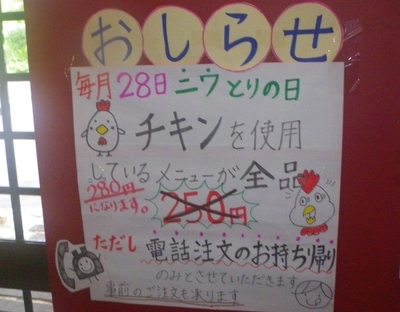 おしらせ
毎月28日ニワとりの日
チキンを使用
しているメニューが全品
280円
になります。
250円
ただし電話注文のお持ち帰り
のみとさせていただきます
事前のご注文も承ります